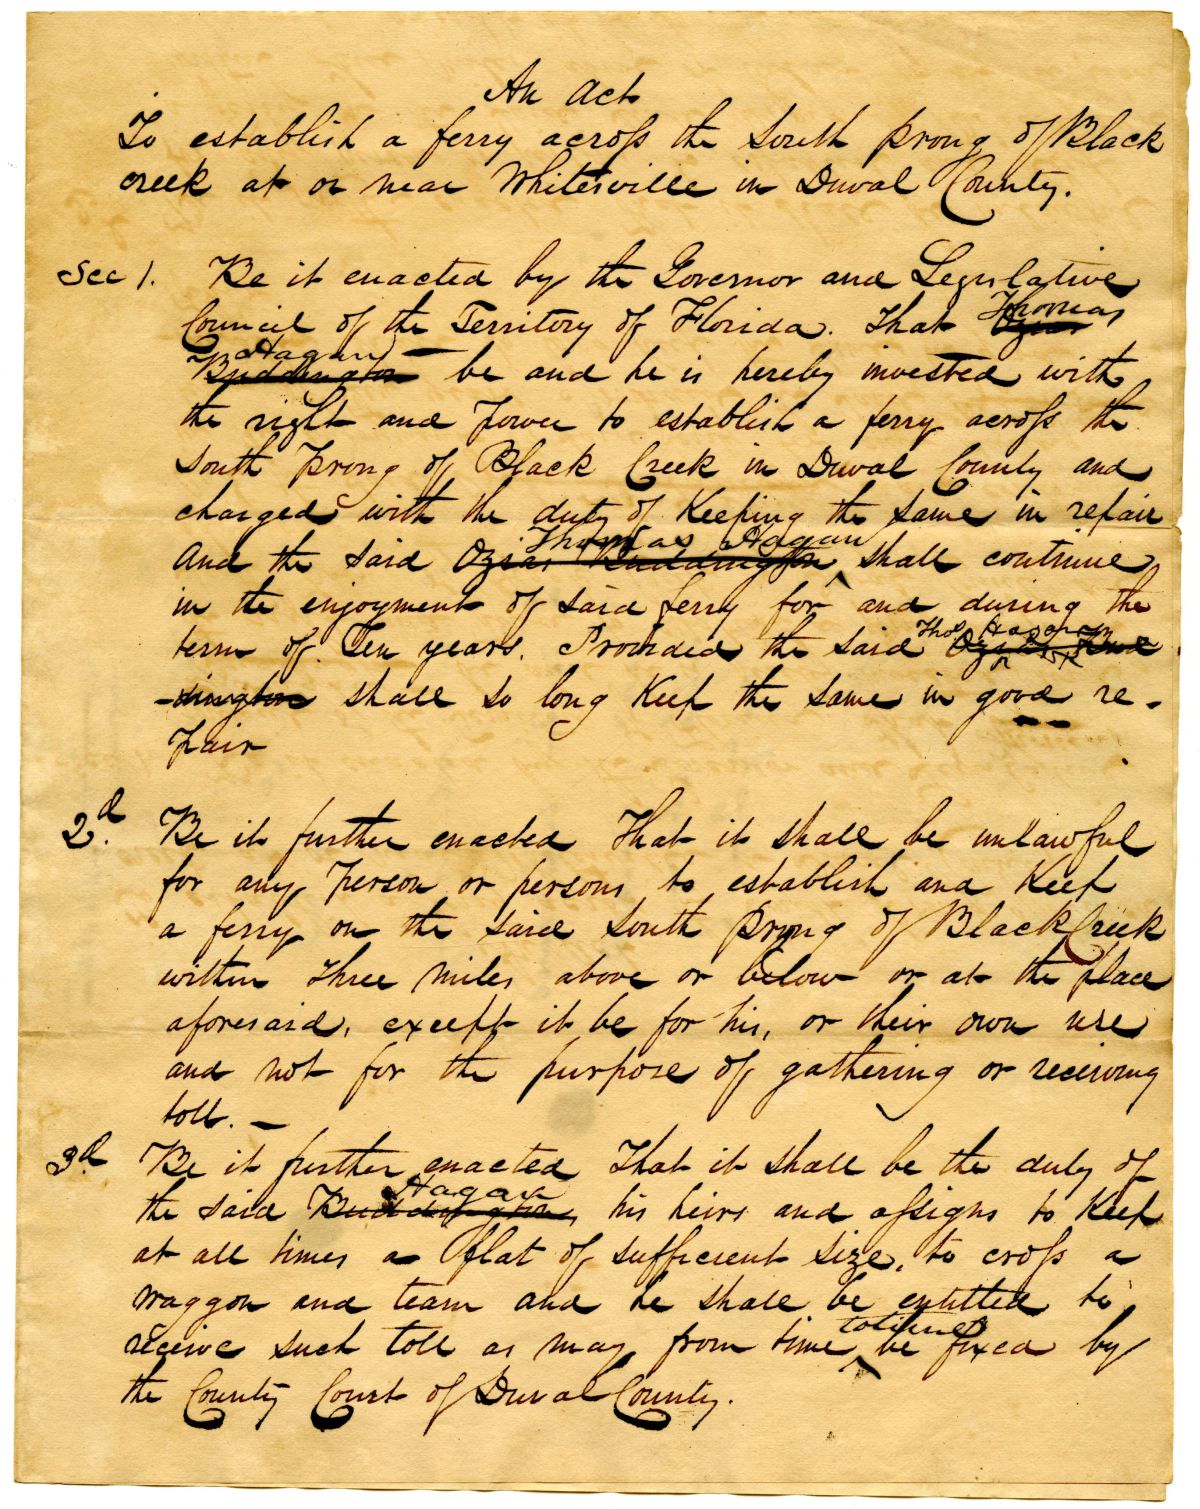 An Act
To establish a ferry across the South prong of Black
creek at or near Whitesville in Duval County.
Sec 1. Be it enacted by the Governor and Legislative
Thomas
Council of the Territory of Florida. That Ozias
Hagan
Buddington be and he is hereby invested with
the right and power to establish a ferry across the
South prong of Black Creek in Duval County and
charged with the duty of Keeping the same in repair
Thomas Hagan
And the said Ozias Buddington shall continue
in the enjoyment of said ferry for and during the
Thos. Hagan
term of Ten years. Provided the said Ozias Bud
-dington shall so long Keep the same in good re-
pair
2d. Be it further enacted That it shall be unlawful
for any person or persons to establish and Keep
a ferry on the said South prong of Black Creek
within three miles above or below or at the place
aforesaid, except it be for his, or their own use
and not for the purpose of gathering or receiving
toll. —
3d. Be it further enacted That it shall be the duty of
Hagan
the said Buddington, his heirs and assigns to Keep
at all times a flat of sufficient size, to cross a
waggon and team and he shall be entitled to
to time
receive such toll as may from time ^ be fixed by
the County Court of Duval County.